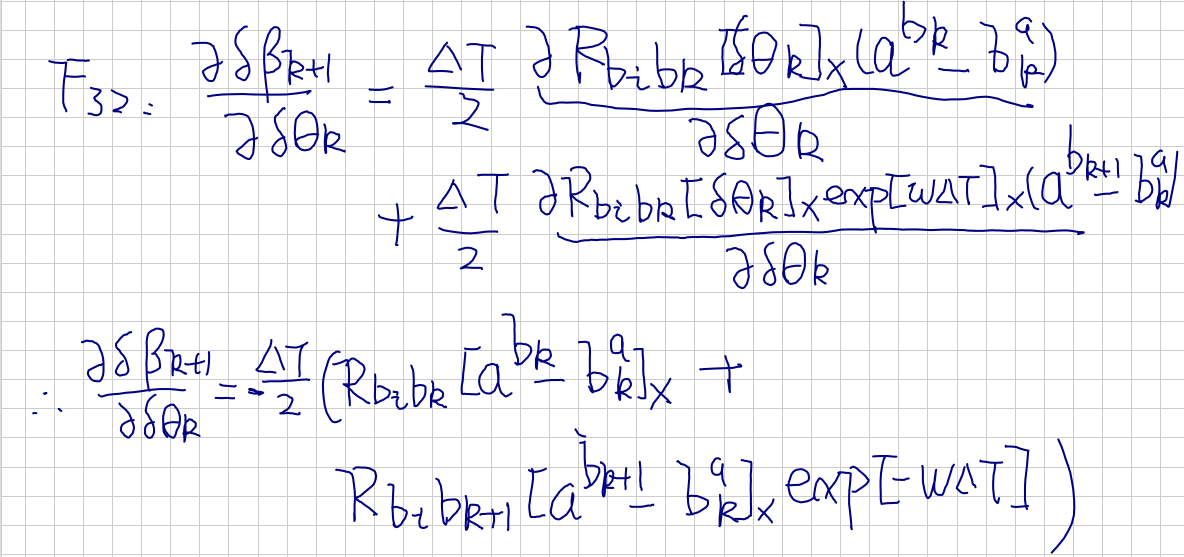 F₃₂ = ∂δβₖ₊₁/∂δθₖ = ΔT/2 ∂R_{b_i b_k}[δθₖ]ₓ(a^{b_k} - b_k^a)/∂δθₖ
+ ΔT/2 ∂R_{b_i b_k}[δθₖ]ₓexp[wΔT]ₓ(a^{b_{k+1}} - b_k^a)/∂δθₖ
∴ ∂δβₖ₊₁/∂δθₖ = -ΔT/2 (R_{b_i b_k}[a^{b_k} - b_k^a]ₓ +
R_{b_i b_{k+1}}[a^{b_{k+1}} - b_k^a]ₓ exp[-wΔT])